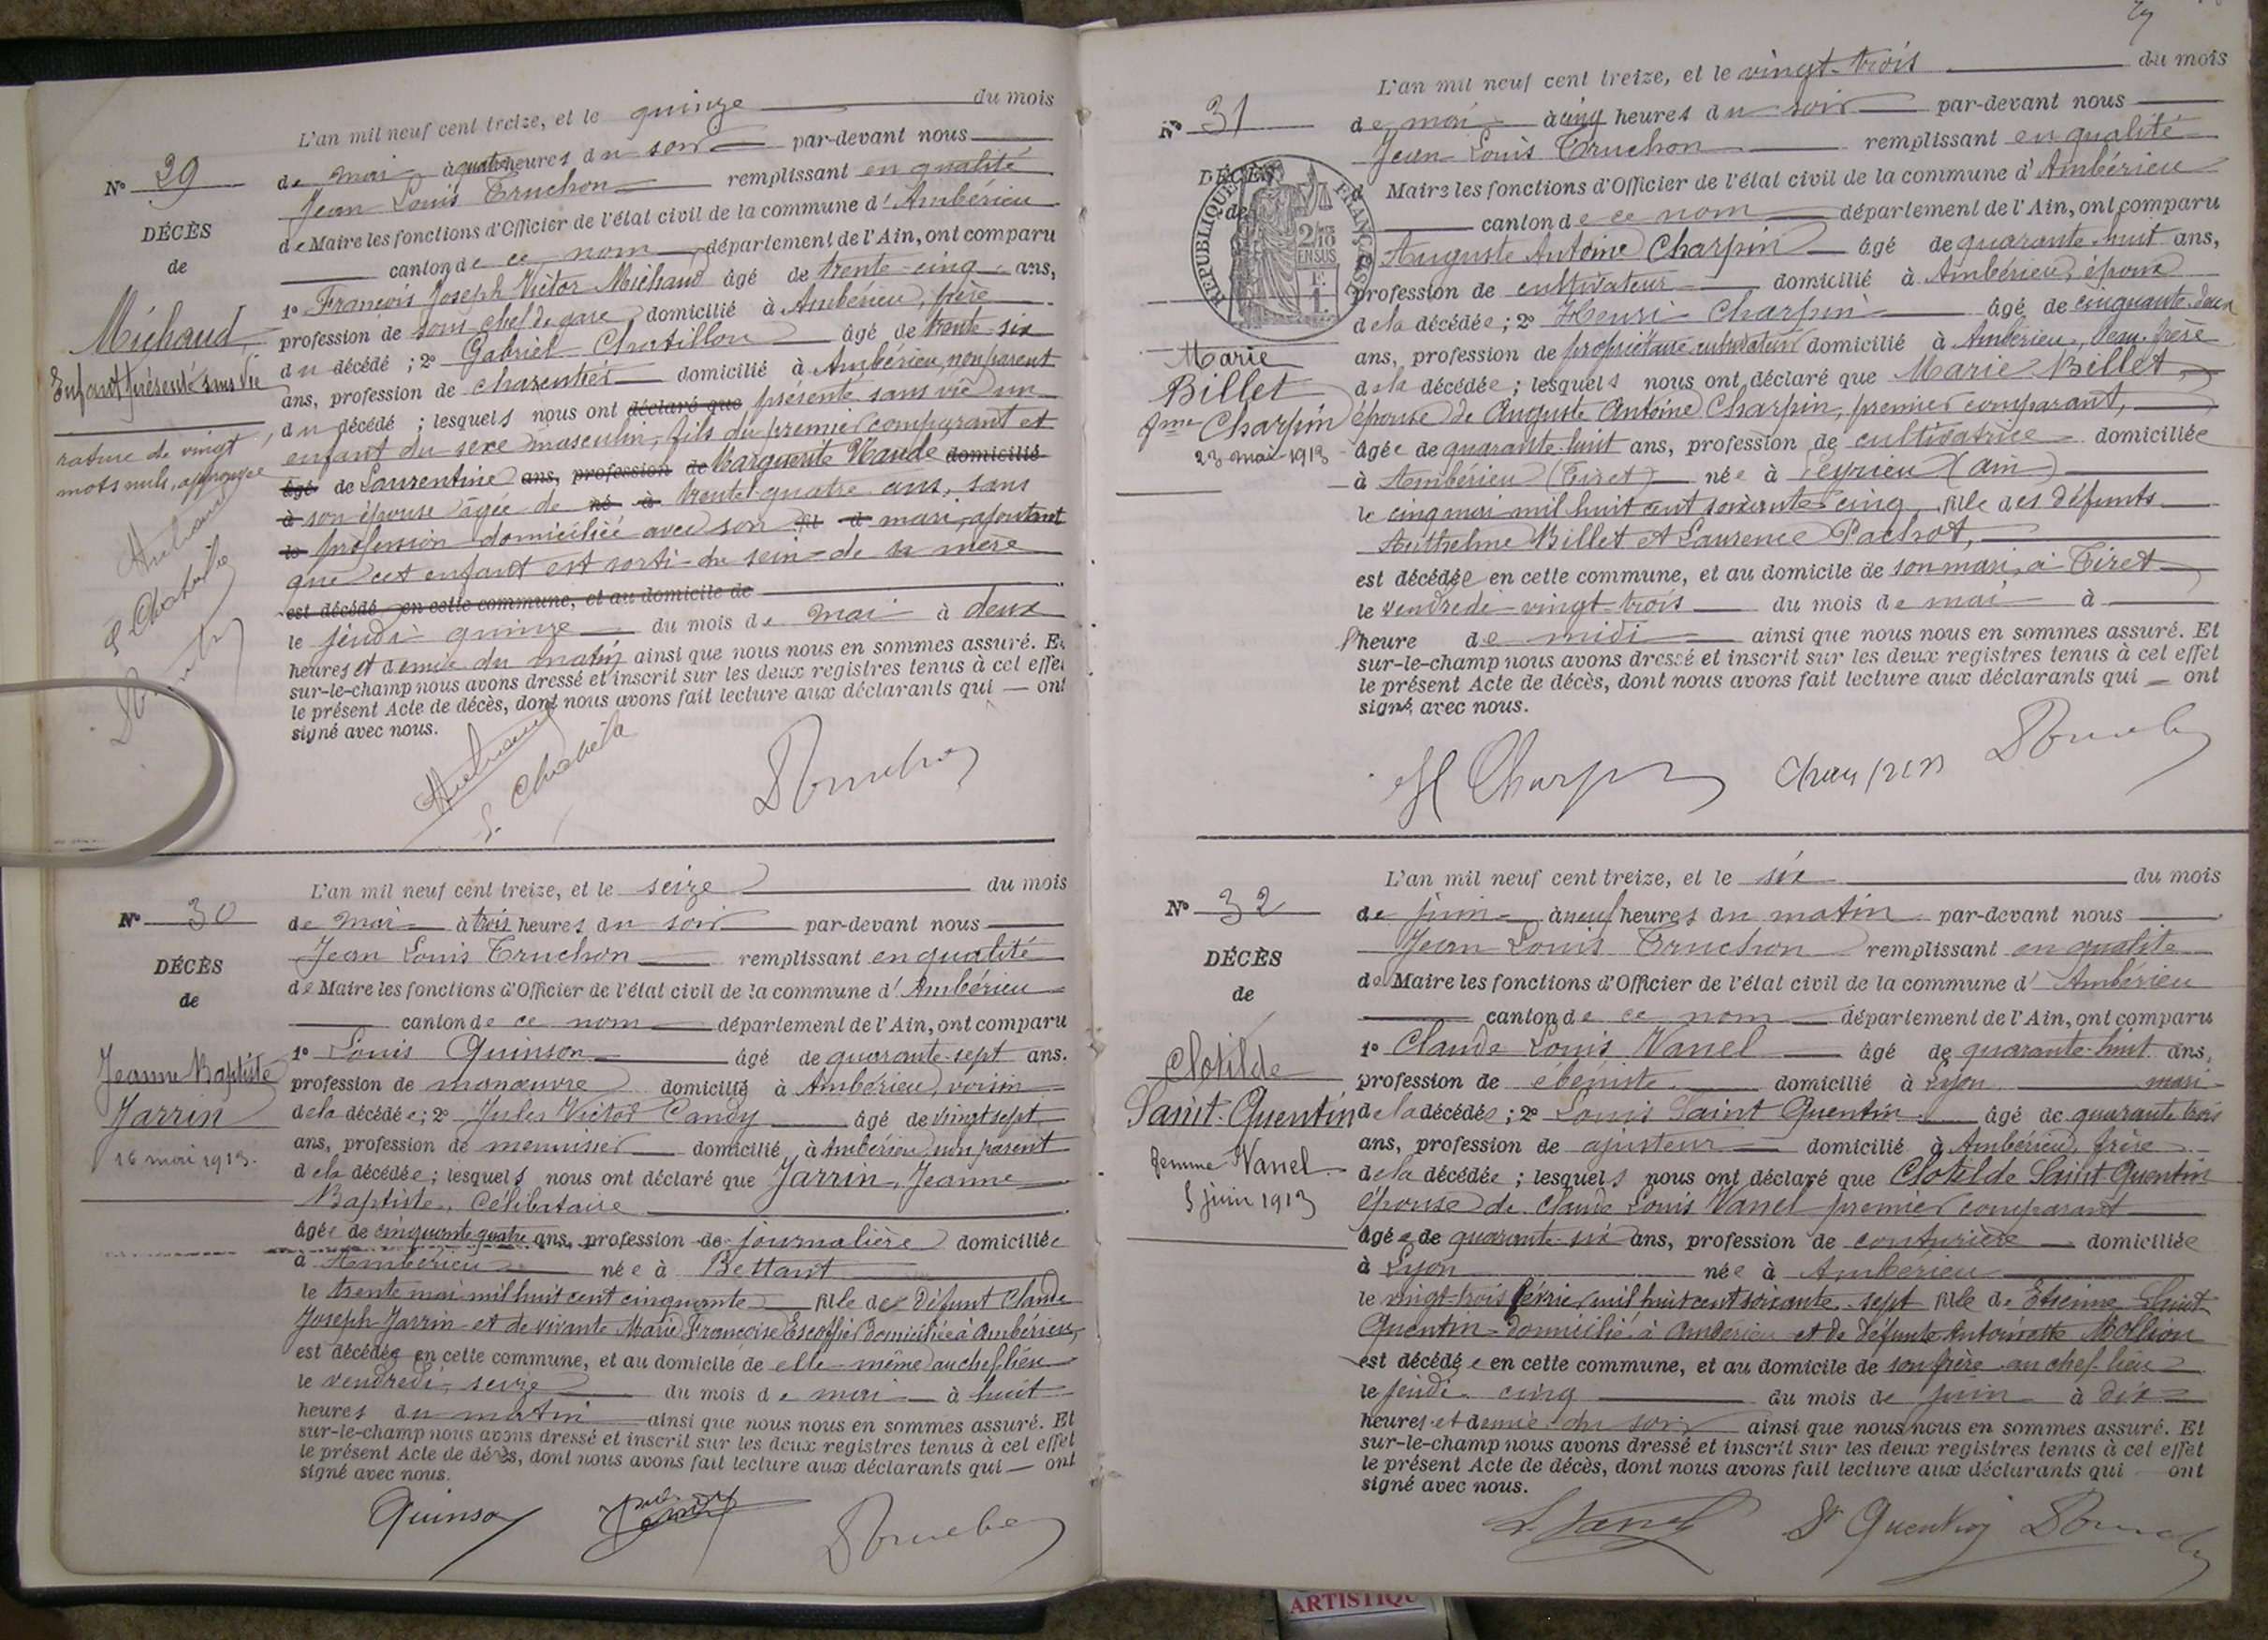 N° 29
DÉCÈS
de
Michaud
Enfant présenté sans vie
rature de vingt
mots nuls, approuvée
L'an mil neuf cent treize, et le quinze du mois
de mai à quatre heures du soir par-devant nous
Jean Louis Truchon remplissant en qualité
de Maire les fonctions d'Officier de l'état civil de la commune d'Ambérieu
canton de ce nom département de l'Ain, ont comparu
1° François Joseph Victor Michaud âgé de trente-cinq ans,
profession de sous chef de gare domicilié à Ambérieu, père
du décédé ; 2° Gabriel Chatillon âgé de trente-six
ans, profession de charpentier domicilié à Ambérieu, non parent
du décédé ; lesquels nous ont déclaré que présenté sans vie un
enfant du sexe masculin, fils du premier comparant et
âgé de Laurentine ans, profession de Marguerite domicilié
à son épouse âgée de né à trente-quatre ans, sans
le profession domiciliée avec son fil d mari, ajoutant
que cet enfant est sorti du sein de sa mère
est décédé en cette commune, et au domicile de
le jeudi quinze du mois de mai à deux
heures et demie du matin ainsi que nous nous en sommes assuré. Et
sur-le-champ nous avons dressé et inscrit sur les deux registres tenus à cet effet
le présent Acte de décès, dont nous avons fait lecture aux déclarants qui ont
signé avec nous.
N° 30
DÉCÈS
de
Jeanne Baptiste
Jarrin
16 mai 1913.
L'an mil neuf cent treize, et le seize du mois
de mai à trois heures du soir par-devant nous
Jean Louis Truchon remplissant en qualité
de Maire les fonctions d'Officier de l'état civil de la commune d'Ambérieu
canton de ce nom département de l'Ain, ont comparu
1° Louis Quinson âgé de quarante-sept ans.
profession de manœuvre domicilié à Ambérieu, voisin
de la décédée ; 2° Jules Victor Candy âgé de vingt sept
ans, profession de menuisier domicilié à Ambérieu non parent
de la décédée ; lesquels nous ont déclaré que Jarrin, Jeanne
Baptiste, Célibataire
âgée de cinquante quatre ans, profession de journalière domiciliée
à Ambérieu née à Bettant
le trente mai mil huit cent cinquante fille de Défunt Claude
Joseph Jarrin et de vivante Marie Françoise Escoffié Domiciliée à Ambérieu,
est décédée en cette commune, et au domicile de elle-même au chef lieu
le vendredi seize du mois de mai à huit
heures du matin ainsi que nous nous en sommes assuré. Et
sur-le-champ nous avons dressé et inscrit sur les deux registres tenus à cet effet
le présent Acte de décès, dont nous avons fait lecture aux déclarants qui ont
signé avec nous.
Quinson
N° 31
DÉCÈS
de
RÉPUBLIQUE FRANÇAISE
2/10
EN SUS
Marie
Billet
fme Charpin
23 mai 1913
L'an mil neuf cent treize, et le vingt-trois du mois
de mai à cinq heures du soir par-devant nous
Jean Louis Truchon remplissant en qualité
d Maire les fonctions d'Officier de l'état civil de la commune d'Ambérieu
canton de ce nom département de l'Ain, ont comparu
Auguste Antoine Charpin âgé de quarante-huit ans,
profession de cultivateur domicilié à Ambérieu, époux
de la décédée ; 2° Henri Charpin âgé de cinquante-deux
ans, profession de propriétaire cultivateur domicilié à Ambérieu, beau-frère
de la décédée ; lesquels nous ont déclaré que Marie Billet,
épouse de Auguste Antoine Charpin, premier comparant,
âgée de quarante-huit ans, profession de cultivatrice domiciliée
à Ambérieu (Tiret) née à Leyrieu (ain)
le cinq mai mil huit cent soixante cinq fille des défunts
Anthelme Billet et Laurence Pachot,
est décédée en cette commune, et au domicile de son mari, à Tiret
le vendredi vingt-trois du mois de mai à
l'heure de midi ainsi que nous nous en sommes assuré. Et
sur-le-champ nous avons dressé et inscrit sur les deux registres tenus à cet effet
le présent Acte de décès, dont nous avons fait lecture aux déclarants qui ont
signé avec nous.
H Charpin
N° 32
DÉCÈS
de
Clotilde
Saint-Quentin
femme Vanel
5 juin 1913
L'an mil neuf cent treize, et le six du mois
de juin à neuf heures du matin par-devant nous
Jean Louis Truchon remplissant en qualité
de Maire les fonctions d'Officier de l'état civil de la commune d'Ambérieu
canton de ce nom département de l'Ain, ont comparu
1° Claude Louis Vanel âgé de quarante-huit ans,
profession de ébéniste domicilié à Lyon mari
de la décédée ; 2° Louis Saint Quentin âgé de quarante trois
ans, profession de ajusteur domicilié à Ambérieu, frère
de la décédée ; lesquels nous ont déclaré que Clotilde Saint Quentin
épouse de Claude Louis Vanel premier comparant
âgée de quarante-six ans, profession de couturière domiciliée
à Lyon née à Ambérieu
le vingt-trois février mil huit cent soixante-sept fille de Etienne Saint
Quentin domicilié à Ambérieu et de défunte Antoinette Mollion
est décédée en cette commune, et au domicile de son frère au chef-lieu
le jeudi cinq du mois de juin à dix
heures et demie du soir ainsi que nous nous en sommes assuré. Et
sur-le-champ nous avons dressé et inscrit sur les deux registres tenus à cet effet
le présent Acte de décès, dont nous avons fait lecture aux déclarants qui ont
signé avec nous.
L. Vanel St Quentin
ARTISTIQU